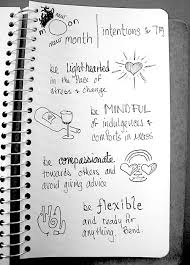 new
moon
new month
intentions & TM
be light-hearted
in the face of
stress & change
be MINDFUL
of indulgences &
comforts in excess
be compassionate
towards others and
avoid giving advice
be flexible
and ready for
anything. Bend